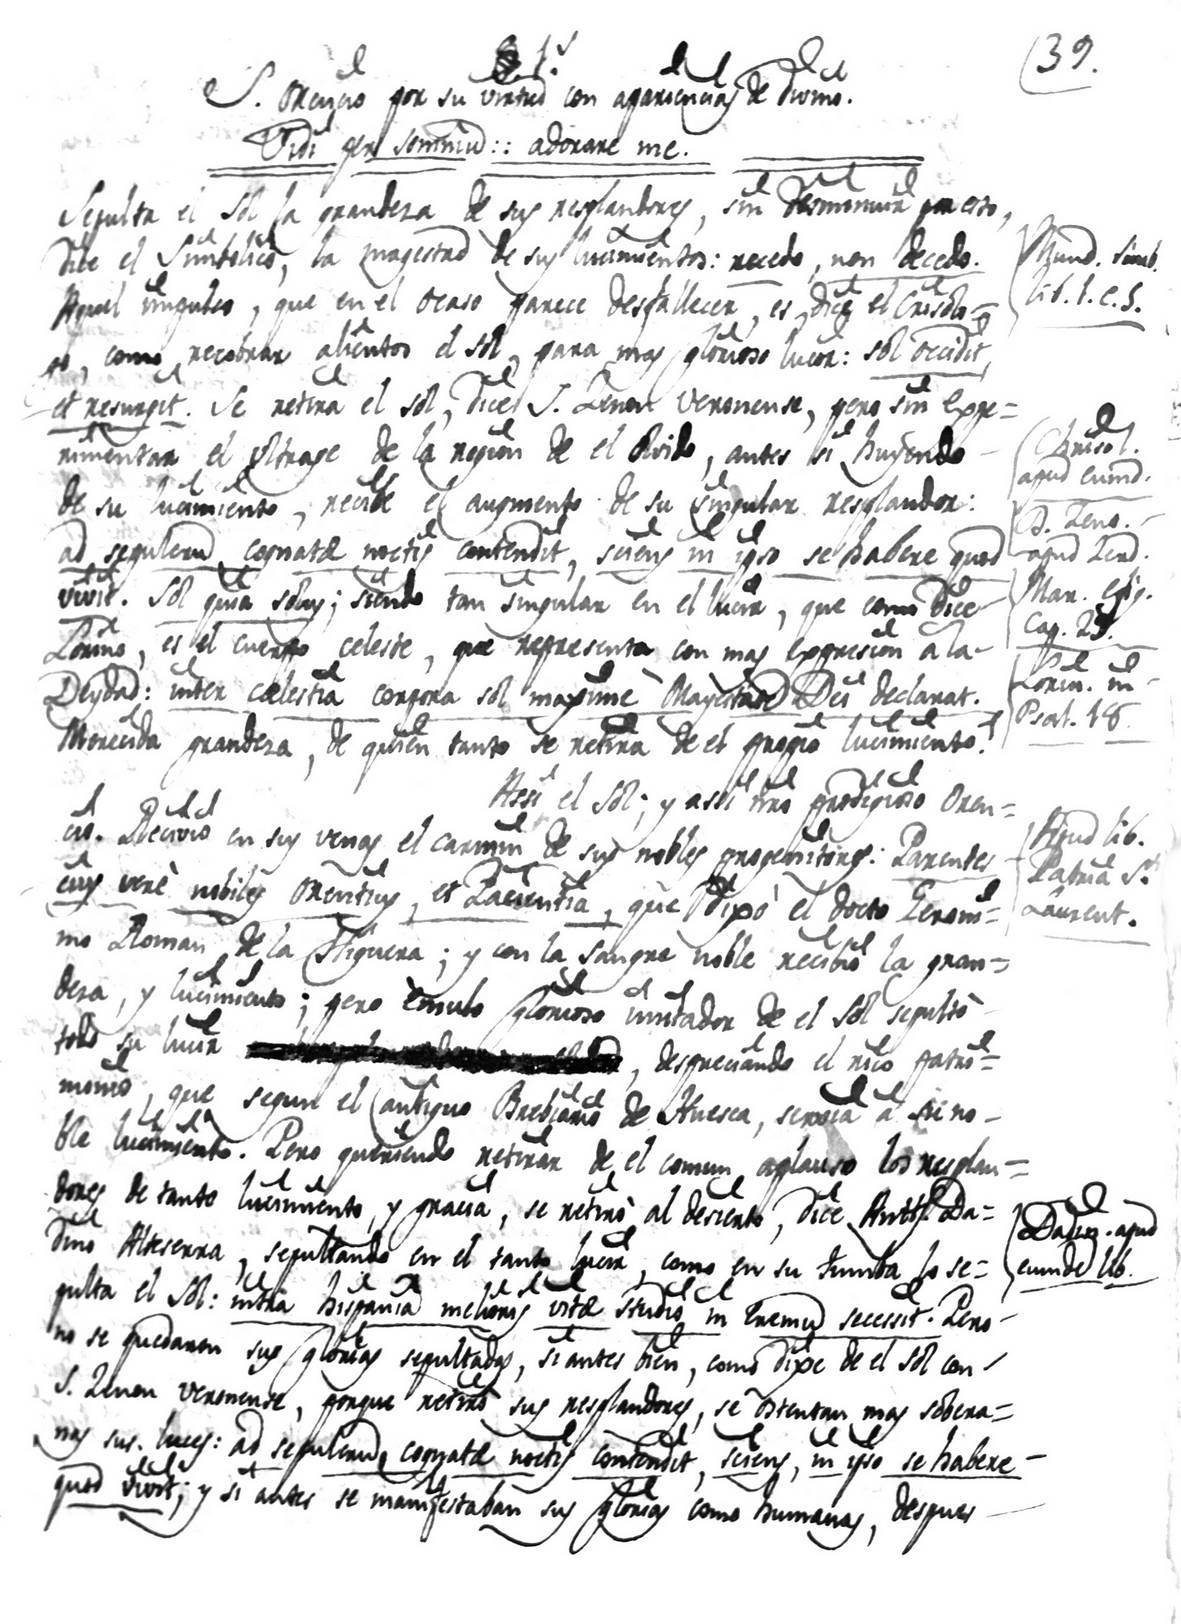 (39.
§ 1.º
S. Orencio por su virtud con apariencias de Divino.
Vidi per somniũ:: adorare me.
Sepulta el Sol la grandeza de sus resplandores, sin desminuir por esto,
dice el Simbolico, la magestad de sus lucimientos: recedo, non decedo.
Mund. simb.
lib. 1. c. 5.
Aquel impulso, que en el ocaso parece desfallecer, es, dice el Crisolo=
go, como recobrar alientos el sol, para mas glorioso lucir: sol occidit,
et resurgit. Se retira el sol, dice S. Zenon Veronense, pero sin expe=
rimentar el ultraje de la region de el olvido, antes si huyendo
Chrisol.
apud eumd.
de su lucimiento, recibe el augmento de su singular resplandor:
ad sepulcrũ cognatæ noctis contendit, sciens in ipso se habere quod
S. Zeno.
apud Zend.
vivit. Sol quia solus; siendo tan singular en el lucir, que como dice
Mar. epig.
cap. 25.
Lorino, es el cuerpo celeste, que representa con mas expresion a la
Deydad: inter cælestia corpora sol maximè Mayestatẽ Dei declarat.
Lorin. in
Psal. 18.
Merecida grandeza, de quien tanto se retira de el propio lucimiento!
Assi el Sol; y assi mro prodigioso Oren=
cio. Recivio en sus venas el carmin de sus nobles progenitores: Parentes
Apud lib.
Patria S.ti
Laurent.
eius verè nobiles Orentius, et Pacientia, que dixo el docto Geroni=
mo Roman de la Higuera; y con la sangre noble recibio la gran=
deza, y lucimiento; pero emulo glorioso imitador de el Sol sepultò
todo su lucir, despreciando el rico patri=
monio, que segun el antiguo Brebiario de Huesca, servia a su no-
ble lucimiento. Pero queriendo retirar de el comun aplauso los resplan=
dores de tanto lucimiento, y gracia, se retirò al desierto, dice Anto. Da=
dino Alteserra, sepultando en el tanto lucir, como en su tumba lo se=
Dadin. apud
eumde lib.
pulta el Sol: intra hispaniã melioris vitæ studio in Eremũ secessit. Pero
no se quedaron sus glorias sepultadas, si antes bien, como dixe de el sol con
S. Zenon veronense, porque retirò sus resplandores, se ostentan mas sobera=
nas sus luces: ad sepulcrũ cognatæ noctis contendit, sciens, in ipso se habere
quod vivit; y si antes se manifestaban sus glorias como humanas, despues